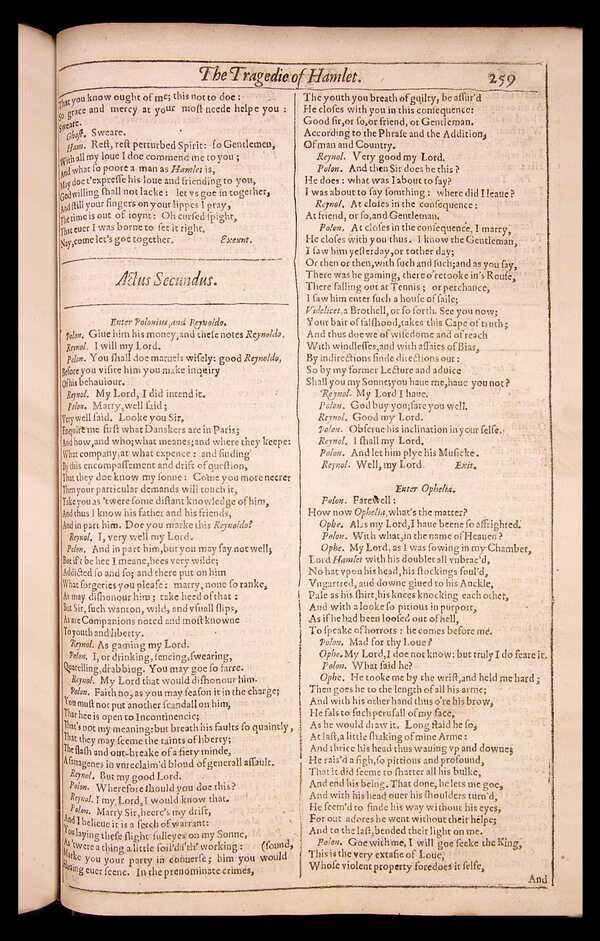 The Tragedie of Hamlet.
259
That you know ought of me; this not to doe:
So grace and mercy at your most neede helpe you:
Sweare.
Ghost. Sweare.
Ham. Rest, rest perturbed Spirit: so Gentlemen,
With all my loue I doe commend me to you;
And what so poore a man as Hamlet is,
May doe t'expresse his loue and friending to you,
God willing shall not lacke: let vs goe in together,
And still your fingers on your lippes I pray,
The time is out of ioynt: Oh cursed spight,
That euer I was borne to set it right.
Nay, come let's goe together. Exeunt.
Actus Secundus.
Enter Polonius, and Reynoldo.
Polon. Giue him his money, and these notes Reynoldo.
Reynol. I will my Lord.
Polon. You shall doe maruels wisely: good Reynoldo,
Before you visite him you make inquiry
Of his behauiour.
Reynol. My Lord, I did intend it.
Polon. Marry, well said;
Very well said. Looke you Sir,
Enquire me first what Danskers are in Paris;
And how, and who; what meanes; and where they keepe:
What company, at what expence: and finding
By this encompassement and drift of question,
That they doe know my sonne: Come you more neerer
Then your particular demands will touch it,
Take you as 'twere some distant knowledge of him,
And thus I know his father and his friends,
And in part him. Doe you marke this Reynoldo?
Reynol. I, very well my Lord.
Polon. And in part him, but you may say not well;
But if't be hee I meane, hees very wilde;
Addicted so and so; and there put on him
What forgeries you please: marry, none so ranke,
As may dishonour him; take heed of that:
But Sir, such wanton, wild, and vsuall slips,
As are Companions noted and most knowne
To youth and liberty.
Reynol. As gaming my Lord.
Polon. I, or drinking, fencing, swearing,
Quarelling, drabbing. You may goe so farre.
Reynol. My Lord that would dishonour him.
Polon. Faith no, as you may season it in the charge;
You must not put another scandall on him,
That hee is open to Incontinencie;
That's not my meaning: but breath his faults so quaintly,
That they may seeme the taints of liberty;
The flash and out-breake of a fiery minde,
A sauagenes in vnreclaim'd bloud of generall assault.
Reynol. But my good Lord.
Polon. Wherefore should you doe this?
Reynol. I my Lord, I would know that.
Polon. Marry Sir, heere's my drift,
And I belieue it is a fetch of warrant:
You laying these slight sulleyes on my Sonne,
As 'twere a thing a little soil'd i'th' working: (found,
Marke you your party in conuerse; him you would
Hauing euer seene. In the prenominate crimes,
The youth you breath of guilty, be assur'd
He closes with you in this consequence:
Good sir, or so, or friend, or Gentleman.
According to the Phrase and the Addition,
Of man and Country.
Reynol. Very good my Lord.
Polon. And then Sir does he this?
He does: what was I about to say?
I was about to say somthing: where did I leaue?
Reynol. At closes in the consequence:
At friend, or so, and Gentleman.
Polon. At closes in the consequence, I marry,
He closes with you thus. I know the Gentleman,
I saw him yesterday, or tother day;
Or then or then, with such and such; and as you say,
There was he gaming, there o'retooke in's Rouse,
There falling out at Tennis; or perchance,
I saw him enter such a house of saile;
Videlicet, a Brothell, or so forth. See you now;
Your bait of falshood, takes this Cape of truth;
And thus doe we of wisedome and of reach
With windlesses, and with assaies of Bias,
By indirections finde directions out:
So by my former Lecture and aduice
Shall you my Sonne; you haue me, haue you not?
Reynol. My Lord I haue.
Polon. God buy you; fare you well.
Reynol. Good my Lord.
Polon. Obserue his inclination in your selfe.
Reynol. I shall my Lord.
Polon. And let him plye his Musicke.
Reynol. Well, my Lord. Exit.
Enter Ophelia.
Polon. Farewell:
How now Ophelia, what's the matter?
Ophe. Alas my Lord, I haue beene so affrighted.
Polon. With what, in the name of Heauen?
Ophe. My Lord, as I was sowing in my Chamber,
Lord Hamlet with his doublet all vnbrac'd,
No hat vpon his head, his stockings foul'd,
Vngartred, and downe giued to his Anckle,
Pale as his shirt, his knees knocking each other,
And with a looke so pitious in purport,
As if he had been loosed out of hell,
To speake of horrors: he comes before me.
Polon. Mad for thy Loue?
Ophe. My Lord, I doe not know: but truly I do feare it.
Polon. What said he?
Ophe. He tooke me by the wrist, and held me hard;
Then goes he to the length of all his arme;
And with his other hand thus o're his brow,
He fals to such perusall of my face,
As he would draw it. Long staid he so,
At last, a little shaking of mine Arme:
And thrice his head thus wauing vp and downe;
He rais'd a sigh, so pittious and profound,
That it did seeme to shatter all his bulke,
And end his being. That done, he lets me goe,
And with his head ouer his shoulders turn'd,
He seem'd to finde his way without his eyes,
For out adores he went without their helpe;
And to the last, bended their light on me.
Polon. Goe with me, I will goe seeke the King,
This is the very extasie of Loue,
Whose violent property foredoes it selfe,
And